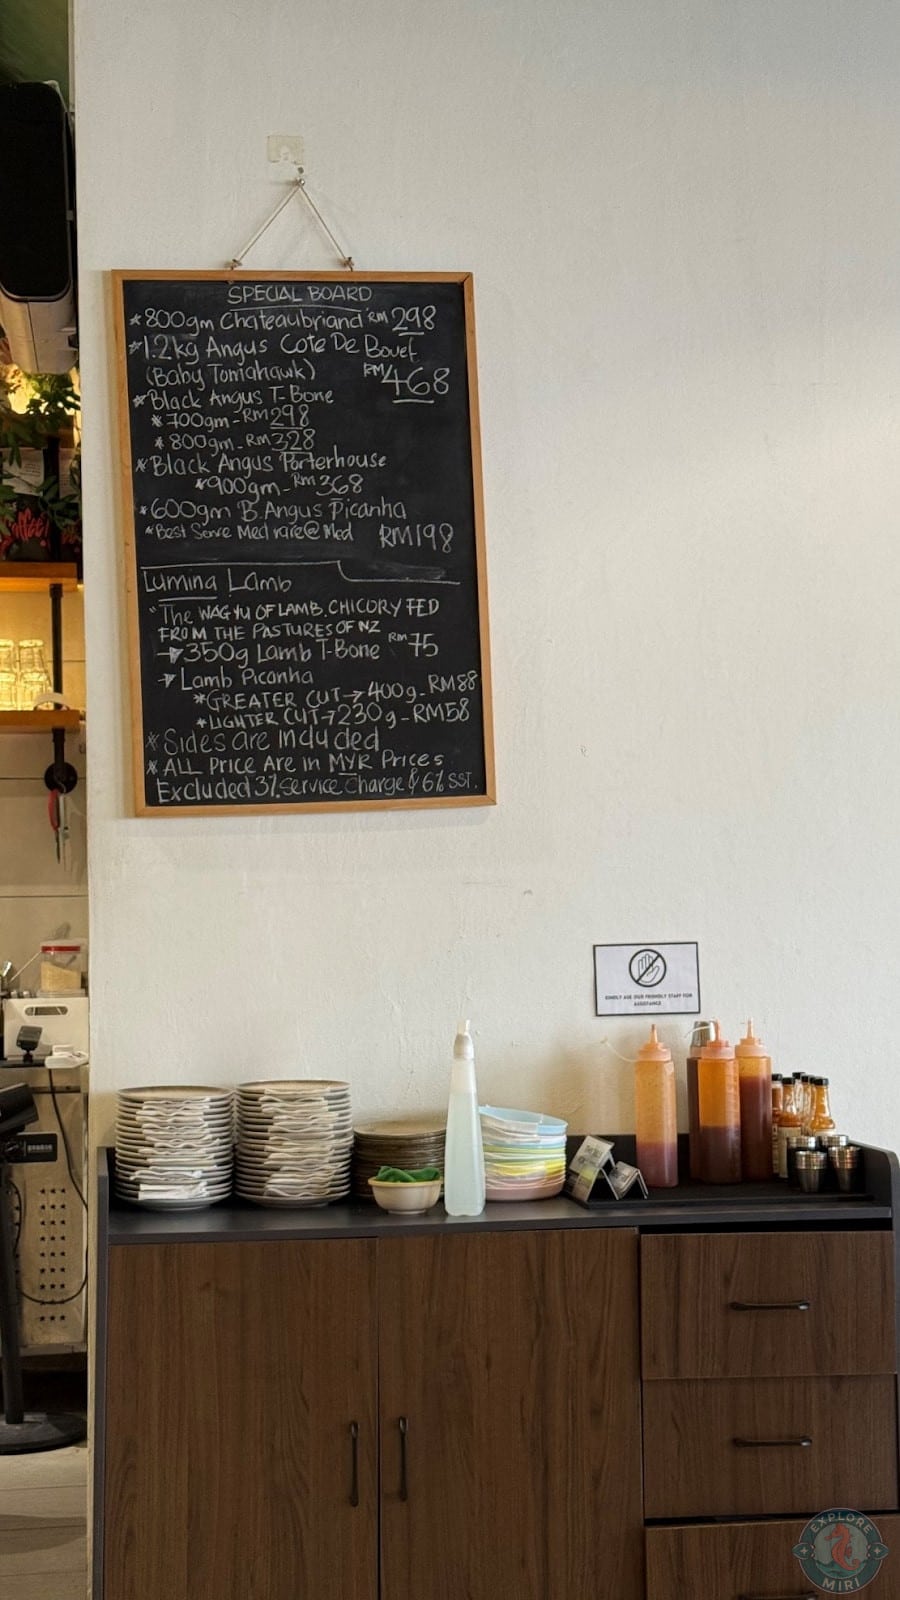 SPECIAL BOARD
* 800gm Chateaubriand RM 298
* 1.2kg Angus Cote De Bouef
(Baby Tomahawk) RM 468
* Black Angus T-Bone
* 700gm - RM 298
* 800gm - RM 328
* Black Angus Porterhouse
* 900gm - RM 368
* 600gm B.Angus Picanha
* Best Serve Med rare @ Med RM198
Lumina Lamb
"The WAGYU OF LAMB. CHICORY FED
FROM THE PASTURES OF NZ
→ 350g Lamb T-Bone RM 75
→ Lamb Picanha
* GREATER CUT → 400g - RM88
* LIGHTER CUT → 230g - RM58
* Sides are included
* ALL Price Are in MYR Prices
Excluded 3% Service Charge & 6% SST.
KINDLY ASK OUR FRIENDLY STAFF FOR
ASSISTANCE
EXPLORE
MIRI